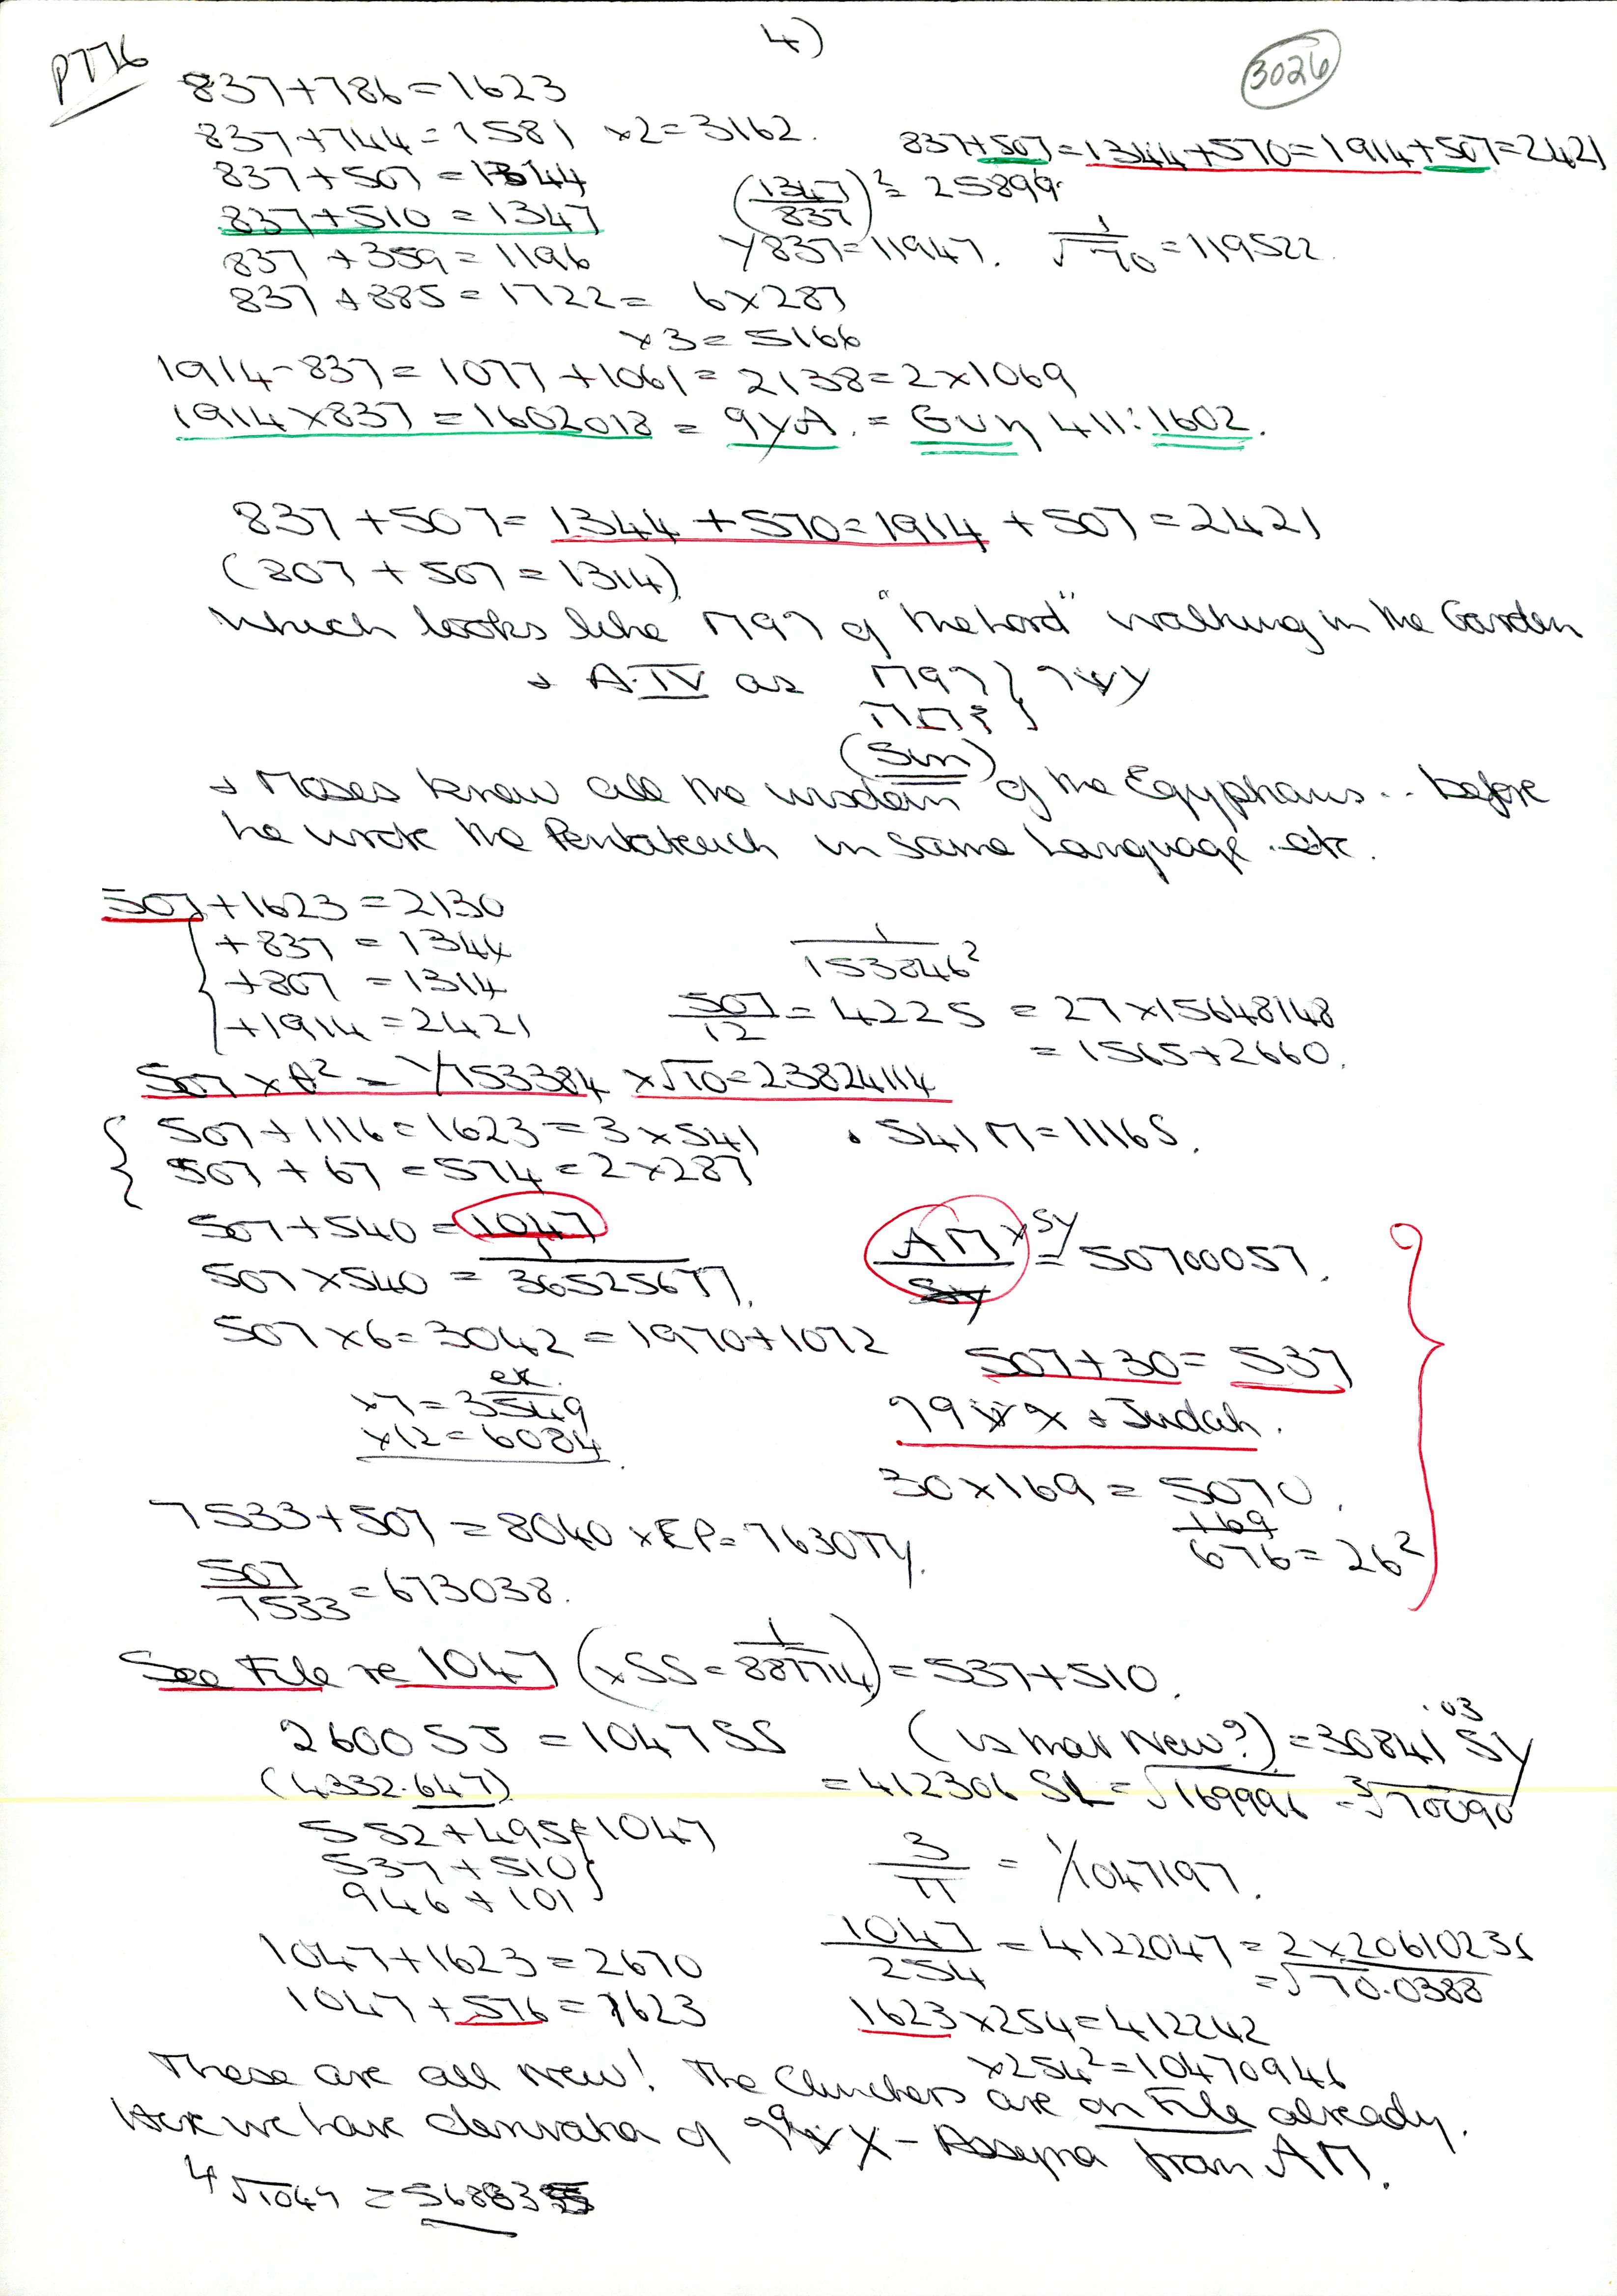 4)
PT76
3026
837+786=1623
837+744=1581 ×2=3162.
837+507=1344+570=1914+507=2421
837+507=1344
837+510=1347
(1347/837)² = 25899.
837+359=1196
Y837=11947. 1/√70=119522.
837+885=1722= 6×287
×3=5166
1914-837=1077+1061=2138=2×1069
1914×837=1602018=9YA.= Gun 411:1602.
837+507=1344+570=1914+507=2421
(807+507=1314)
which looks like of "the Lord" walking in the Garden
+ A.IV as
(Sin)
+ Moses knew all the wisdom of the Egyptians.. before
he wrote the Pentateuch in same language .etc.
507+1623=2130
+837=1344
+807=1314
+1914=2421
1/153846²
507/12=4225=27×15648148
=1565+2660.
507×A²=1/753384 ×√10=23824114
507+1116=1623=3×541 . 541 Π=11165.
507+67=574=2×287
507+540=1047
507×540=1/365256Π.
AΠ×SY=50700057.
507×6=3042=1970+1072
507+30=537
×7=3549 ex.
×12=6084.
+ Judah.
30×169=5070.
169
676=26²
7533+507=8040×EP=7630TY.
507/7533=673038.
See File re 1047 (×SS=1/887714)=537+510.
2600 SJ=1047 SS (is that New?)=30841.03 SY
(4332.647)
=412306 SL=√169996=³√70090
552+495=1047
537+510
946+101
3/π=1/1047197.
1047+1623=2670
1047/254=4122047=2×20610236
=√70.0388
1047+576=1623
1623×254=412242
×254²=10470946
These are all New! The Clinchers are on File already.
Here we have derivation of - Assyria from AΠ.
⁴√1047=568835